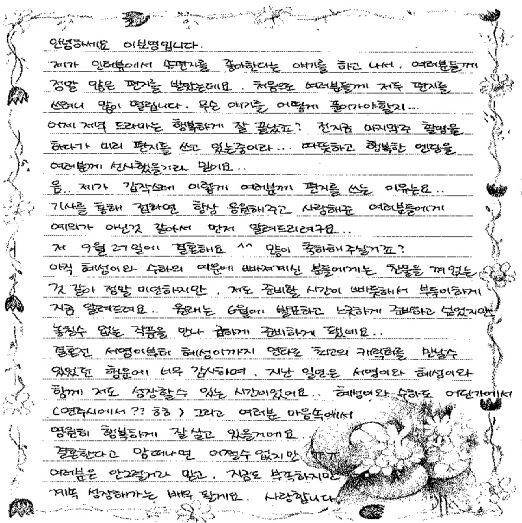 안녕하세요 이보영입니다.
제가 인터뷰에서 손편지를 좋아한다는 얘기를 하고 나서. 여러분들께
정말 많은 편지를 받았는데요. 처음으로 여러분들께 저도 편지를
쓰려니 많이 떨립니다. 무슨 얘기를 어떻게 풀어가야할지...
어제 저녁 드라마는 행복하게 잘 끝났죠? 전 지금 마지막주 촬영을
하다가 미리 편지를 쓰고 있는중이라... 따뜻하고 행복한 엔딩을
여러분께 선사했을거라 믿어요..
음.. 제가 갑작스레 이렇게 여러분께 편지를 쓰는 이유는요..
기사를 통해 전하면 항상 응원해주고 사랑해준 여러분들에게
예의가 아닌것 같아서 먼저 알려드리려구요...
저 9월 27일에 결혼해요 ^^ 많이 축하해주실거죠?
아직 혜성이와 수하의 여운에 빠져계신 분들에게는 찬물을 껴얹는
것 같아 정말 미안하지만. 저도 준비할 시간이 빠듯해서 부득이하게
지금 알려드려요.. 원래는 6월에 발표하고 느긋하게 준비하고 싶었지만
놓칠수 없는 작품을 만나 급하게 준비하게 됐네요..
결혼전 서영이부터 혜성이까지 연타로 최고의 캐릭터를 만날수
있었던 행운에 너무 감사하며. 지난 일년은 서영이와 혜성이와
함께 저도 성장할수 있는 시간이었어요.. 혜성이와 수하도 어딘가에서
(연주시에서?? ㅎㅎ) 그리고 여러분 마음속에서
영원히 행복하게 잘 살고 있을거에요.
결혼한다고 맘 떠나면 어쩔수 없지만
여러분은 안그럴거라 믿고. 지금도 부족하지만
계속 성장해가는 배우 될게요. 사랑합니다